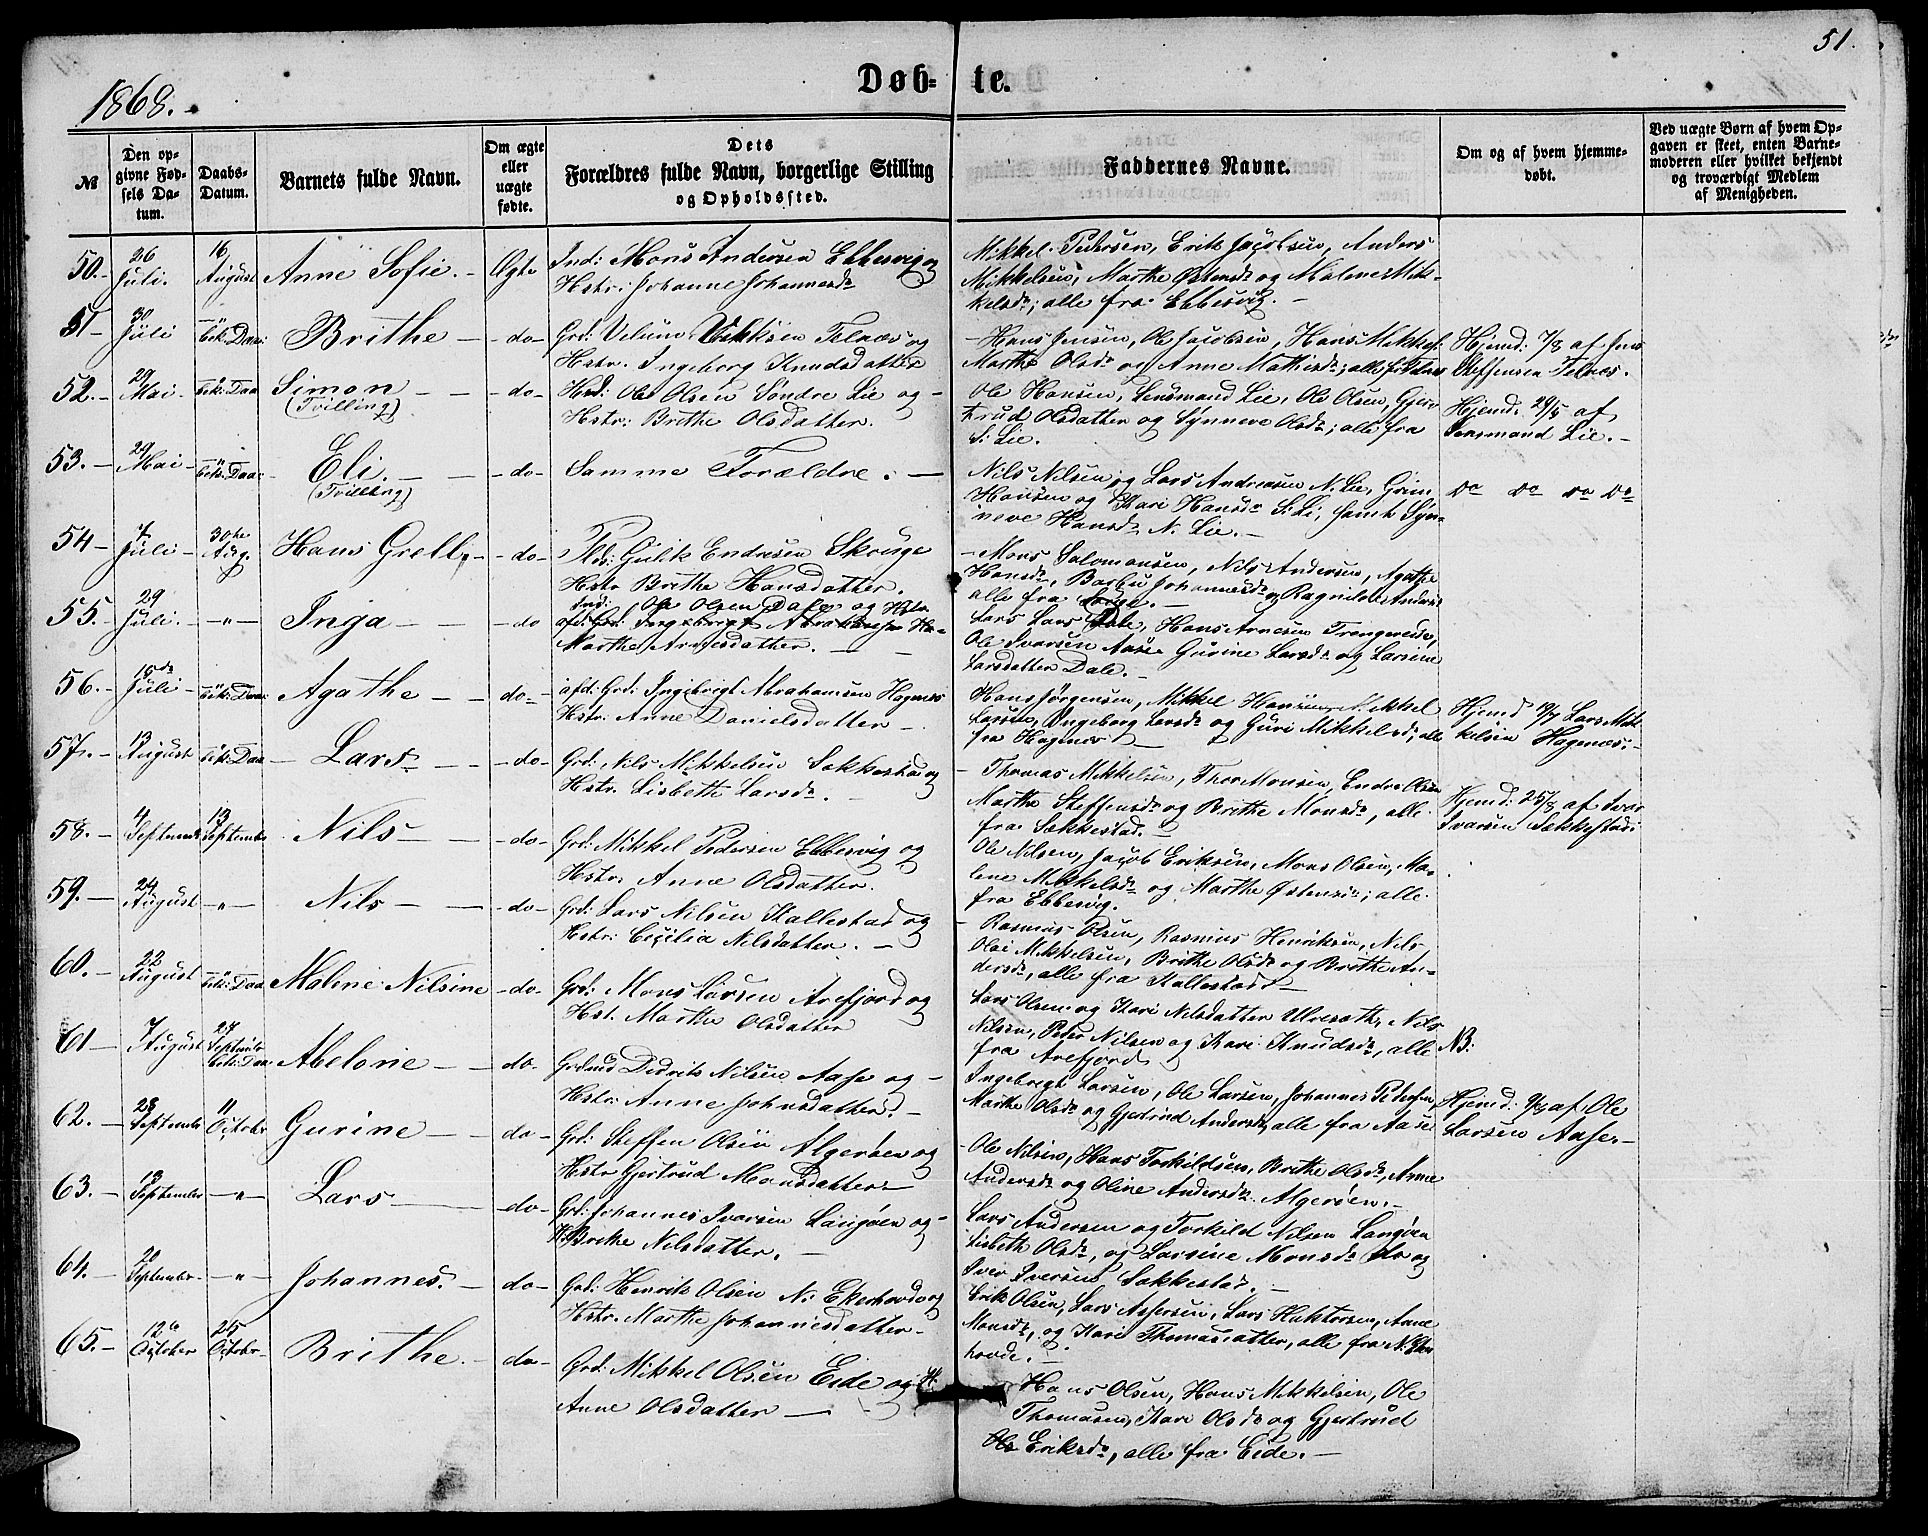 51.
1868.
Døb- te.
№
Den op-
givne Fød-
sels Da-
tum.
Daabs-
Datum.
Barnets fulde Navn.
Om ægte
eller
uægte
fødte.
Dets
Forældres fulde Navn, borgerlige Stilling
og Opholdssted.
Faddernes Navne.
Om og af hvem hjemme-
døbt.
Ved uægte Børn af hvem Op-
gaven er skeet, enten Barne-
moderen eller hvilket bekjendt
og troværdigt Medlem
af Menigheden.
50.- 26 Juli. 16 August Anne Sofie. - Ægte
Ind: Mons Andersen Ebbesvig og
Hstr: Johanne Johannesdr
Mikkel Pedersen, Erik Jacobsen, Anders
Mikkelsen, Marthe Østensdr og Malene Mik-
kelsdr; alle fra Ebbesvig. -
51- 30 Juli -"- Brithe - do-
Grd: Telnæs og
Hstr. Ingeborg Knudsdatter
- Hans Jensen, Ole Jacobsen, Hans Mikkels.
Marthe Olsdr og Anne Mathisdr; alle
Hjemd: 7/8 af Jens
Steffensen Telnes.
52.- 29 Mai- bek: Daa Simon (Tvilling) - do-
Hrd: Ole Olsen Søndre Lie og -
Hstr: Brithe Olsdatter.
Ole Hansen, Lensmand Lie, Ole Olsen, Gjer-
trud Olsdatter og Synneve Olsdr; alle fra
S: Lie.
Hjemd: 29/5 af
Lensmand Lie. -
53.- 29 Mai- -"- bek: Daa: Eli. (Tvilling) - do-
Samme Forældre. -
Nils Nilsen og Lars Andreasen N. Lie,
Hansen og Kari Hansdr S: Li; samt Syn-
neve Hansdr N. Lie. -
Do Do Do Do
54- 7 Juli- 30te Aug. Hans Grell. - do-
Pld: Gulik Endresen Skouge
Hstr Brithe Hansdatter.
- Mons Salomonsen, Nils Andersen, Agathe
Hansdr, Barbru Johannesdr og Ragnilde Andersdr
alle fra
55.- 29 Juli. -"- Inga - do
Ind: Ole Olsen Dale og Hstr.
afd: Grd: Ingebrigt Abrahamsen Ha-
Marthe Arnesdatter. -
Lars Lars Dale, Hans Arnesen Trengereide,
Ole Ivarsen Aase Gurine Larsdr og Larsine
Larsdatter Dale. -
56.- 15de Juli- bek: Daa: Agathe - do-
afd: Grd: Ingebrigt Abrahamsen Hagenes
Hstr: Anne Danielsdatter -
Hans Jørgensen, Mikkel Hansen, Mikkel
Larsen, Ingeborg Larsdr og Guri Mikkelsdr; alle
fra Hagenes -
Hjemd 19/7 Lars Mik-
kelsen Hagenæs; -
57.- 13 August bek: Daa - Lars. - do-
Grd: Nils Mikkelsen Sækkestad og
Hstr. Lisbeth Larsdr. -
- Thomas Mikkelsen, Thor Monsen, Endre Olsen
Marthe Steffensdr og Brithe Monsdr, alle
fra Sækkestad. -
Hjemd: 25/8 af Ivar
Ivarsen Sækkestad:
58.- 4 Septembr 13 September Nils - do-
Grd: Mikkel Pedersen Ebbesvig og
Hstr: Anne Olsdatter.
Ole Nilsen, Jacob Eriksen, Mons Olsen, Ma-
lene Mikkelsdr og Marthe Østensdr; alle
fra Ebbesvig.
59.- 24 August -"- Nils - do-
Grd: Lars Nilsen Kallestad og
Hstr: Cecilia Nilsdatter. -
- Rasmus Olsen, Rasmus Henriksen, Nils
Mikkelsen, Brithe Olsdr og Brithe An-
dersdr, alle fra Kallestad -
60.- 22 August -"- bek: Daa Maline Nilsine - do-
Grd: Mons Larsen Arefjord og
Hst. Marthe Olsdatter
Lars Olsen og Kari Nilsdatter Ulvesath, Nils
Nilsen, Peder Nilsen og Kari Knudsdr, alle
fra Arefjord
NB:
61- 7 August 27 Septembr bek: Daa Abelone - do-
Grdmd Didrik Nilsen Aase og -
Hstr: Anne Johnsdatter. -
Ingebrigt Larsen, Ole Larsen, Johannes Pedersen,
Marthe Olsdr og Gjertrud Andersdr, alle fra Aase
Hjemd: 9/8 af Ole
Larsen Aase. -
62.- 23 September 11 October Gurine - do-
Grd: Steffen Olsen Algerøen og
Hstr Gjertrud Monsdatter. -
- Ole Nilsen, Hans Torkildsen, Brithe Olsdr, Anne
Andersdr og Oline Andersdr Algerøen. -
63.- 13 September -"- Lars - do-
Grd: Johannes Ivarsen Langøen og -
H: Brithe Nilsdatter. -
Lars Andersen og Torkild Nilsen Langøen
Lisbeth Olsdr, og Larsine Monsdr do og
Iver Iversen Sækkestad. -
64.- 20 September- -"- Johannes. - do-
Grd: Henrik Olsen N: Ekerhovd og
Hstr. Marthe Johannesdatter-
Erik Olsen, Lars Assersen, Lars Halstensen, Anne
Monsdr, og Kari Thomasdatter, alle fra N: Eker-
hovde. -
65.- 12te October 25 October- Brithe. - do-
Grd: Mikkel Olsen Eide og H.
Anne Olsdatter -
Hans Olsen, Hans Mikkelsen, Ole
Thomasen, Kari Olsdr og Gjertrud
Eriksdr, alle fra Eide. -